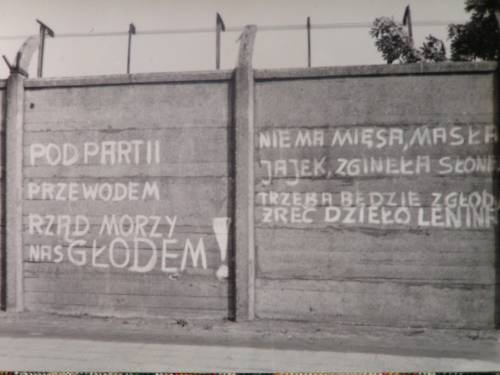 POD PARTII
PRZEWODEM
RZĄD MORZY
NAS GŁODEM!
NIE MA MIĘSA, MASŁA
JAJEK, ZGINEŁA
TRZEBA BĘDZIE Z
ŻREĆ DZIEŁO LENINA